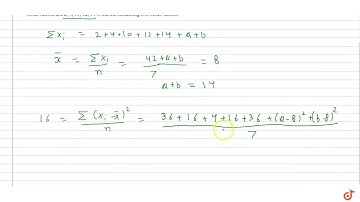 Σxᵢ = 2+4+10+12+14+a+b
x̄ = Σxᵢ / n = 42+a+b / 7 = 8
a+b = 14
16 = Σ(xᵢ-x̄)² / n = 36+16+4+16+36+(a-8)²+(b-8)² / 7